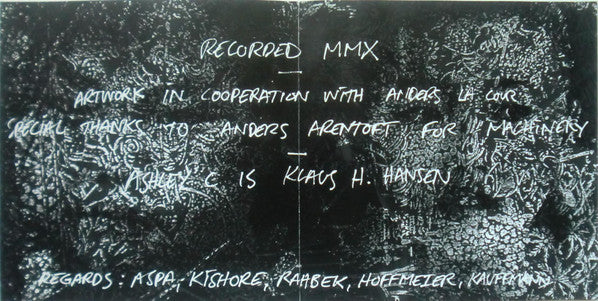 RECORDED MMX
—
ARTWORK IN COOPERATION WITH ANDERS LA COUR
SPECIAL THANKS TO ANDERS ARENTOFT FOR MACHINERY
—
ASHLEY C IS KLAUS H. HANSEN
REGARDS: ASPA, KISHORE, RAHBEK, HOFFMEIER, KAUFFMANN